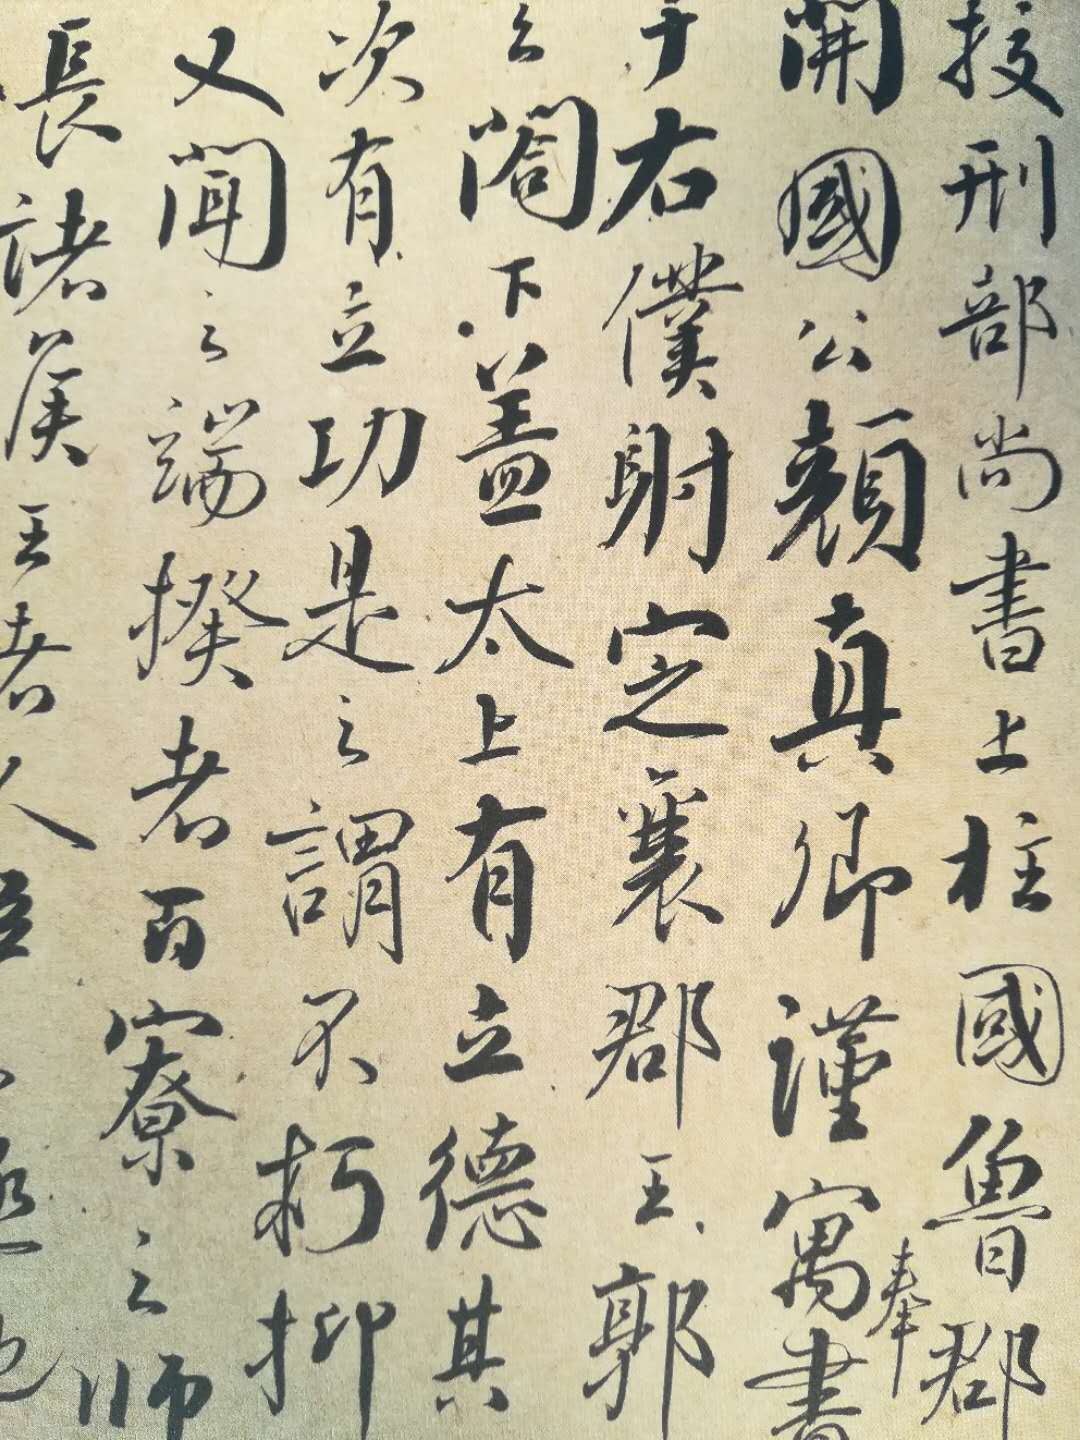 挍刑部尚書上柱國魯郡
開國公顏真卿謹寓書奉
于右僕射定襄郡王郭
公閤下蓋太上有立德其
次有立功是之謂不朽抑
又聞之端揆者百寮之師
長諸侯王者人臣之極地